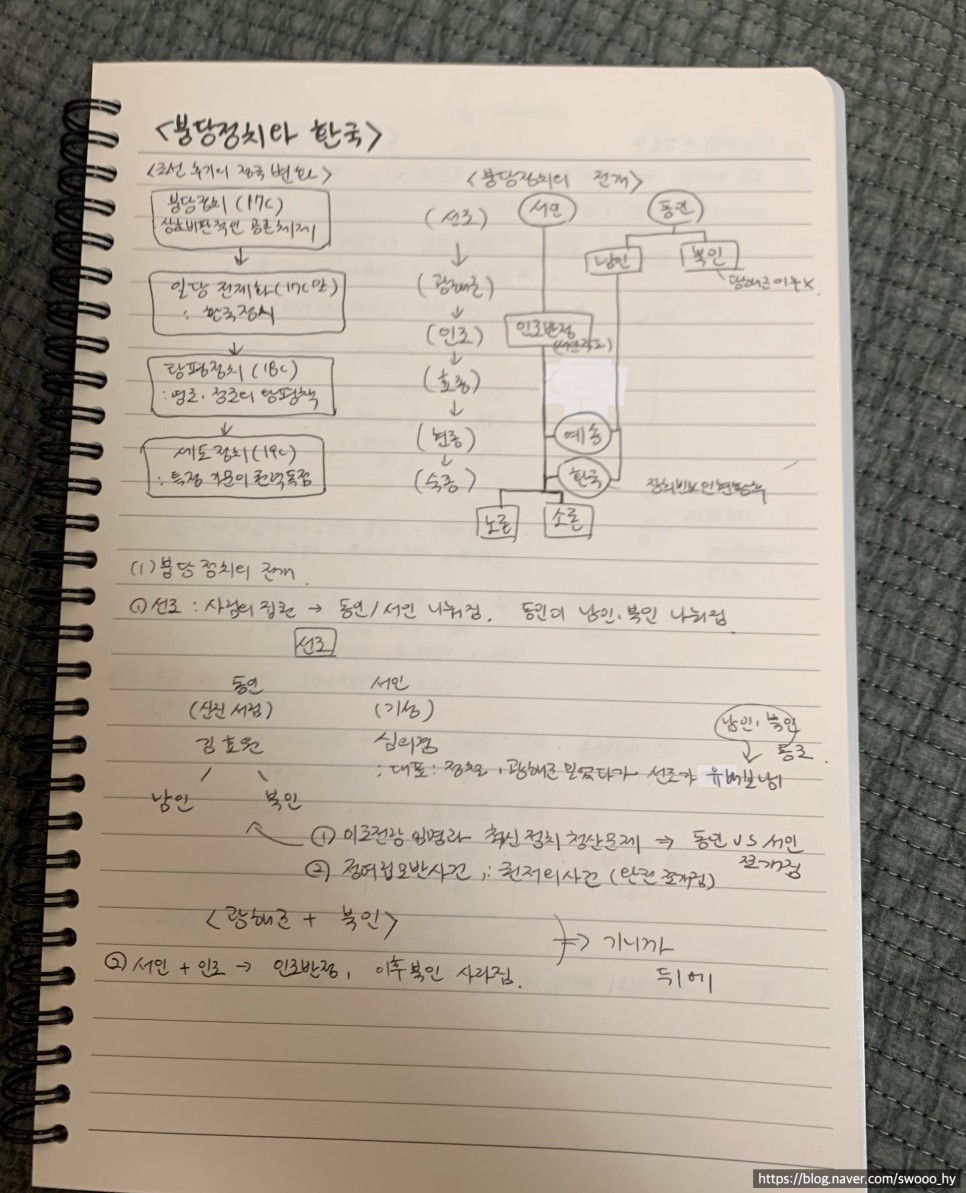 <붕당정치와 환국>
<조선 후기의 정국 변화>
붕당정치 (17C)
상호비판적인 공존체제
↓
일당 전제화 (17C말)
: 환국정치
↓
탕평정치 (18C)
: 영조·정조의 탕평책
↓
세도정치 (19C)
: 특정 가문의 권력독점
<붕당정치의 전개>
(선조) 서인 동인
↓ 남인 북인
(광해군) 광해군 이후 X
↓
(인조) 인조반정
↓
(효종)
↓
(현종) 예송
↓
(숙종) 환국
노론 소론
(1) 붕당 정치의 전개.
① 선조 : 사림의 집권 → 동인/서인 나눠짐. 동인이 남인·북인 나눠짐
선조
동인 서인
(신진 사림) (기성)
김효원 심의겸
남인·북인
↓ 동조.
: 대표 : 정철, 광해군 밀었다가 선조가 유배보냄
남인 북인
① 이조전랑 임명과 척신 정치 청산문제 → 동인 VS 서인
쪼개짐
② 정여립모반사건, : 건저의사건 (완전 쪼개짐)
<광해군 + 북인>
② 서인 + 인조 → 인조반정, 이후 북인 사라짐.
⇒ 기니까
뒤에
https://blog.naver.com/swooo_hy